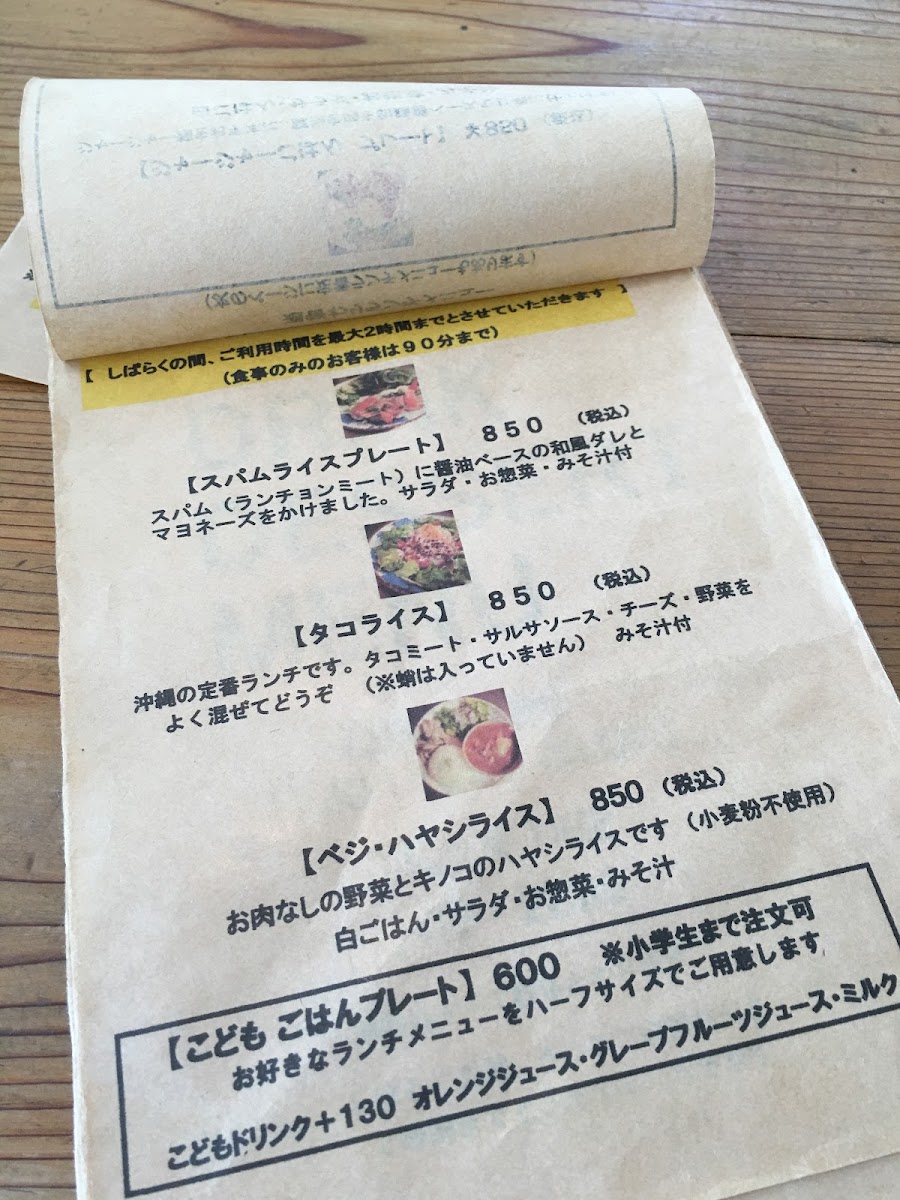 【 しばらくの間、ご利用時間を最大2時間までとさせていただきます 】
(食事のみのお客様は９０分まで)
【スパムライスプレート】 ８５０ （税込）
スパム（ランチョンミート）に醤油ベースの和風ダレと
マヨネーズをかけました。サラダ・お惣菜・みそ汁付
【タコライス】 ８５０ （税込）
沖縄の定番ランチです。タコミート・サルサソース・チーズ・野菜を
よく混ぜてどうぞ （※蛸は入っていません） みそ汁付
【ベジ・ハヤシライス】 850 （税込）
お肉なしの野菜とキノコのハヤシライスです （小麦粉不使用）
白ごはん・サラダ・お惣菜・みそ汁
【こども ごはんプレート】 600 ※小学生まで注文可
お好きなランチメニューをハーフサイズでご用意します
こどもドリンク＋130 オレンジジュース・グレープフルーツジュース・ミルク